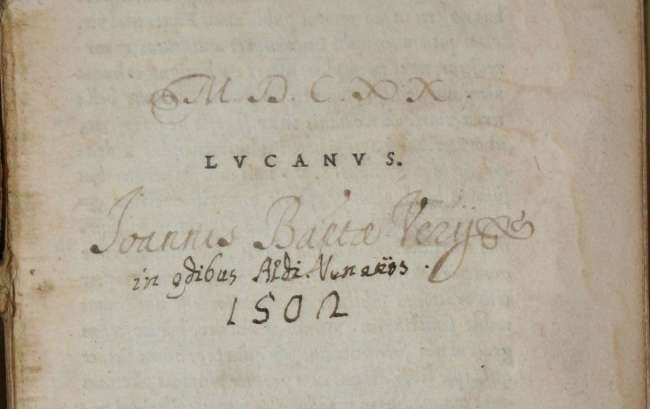 M. D. C. XX.
LVCANVS.
Joannis Baptæ Verÿ
in ędibus Aldi Venetiis.
1502